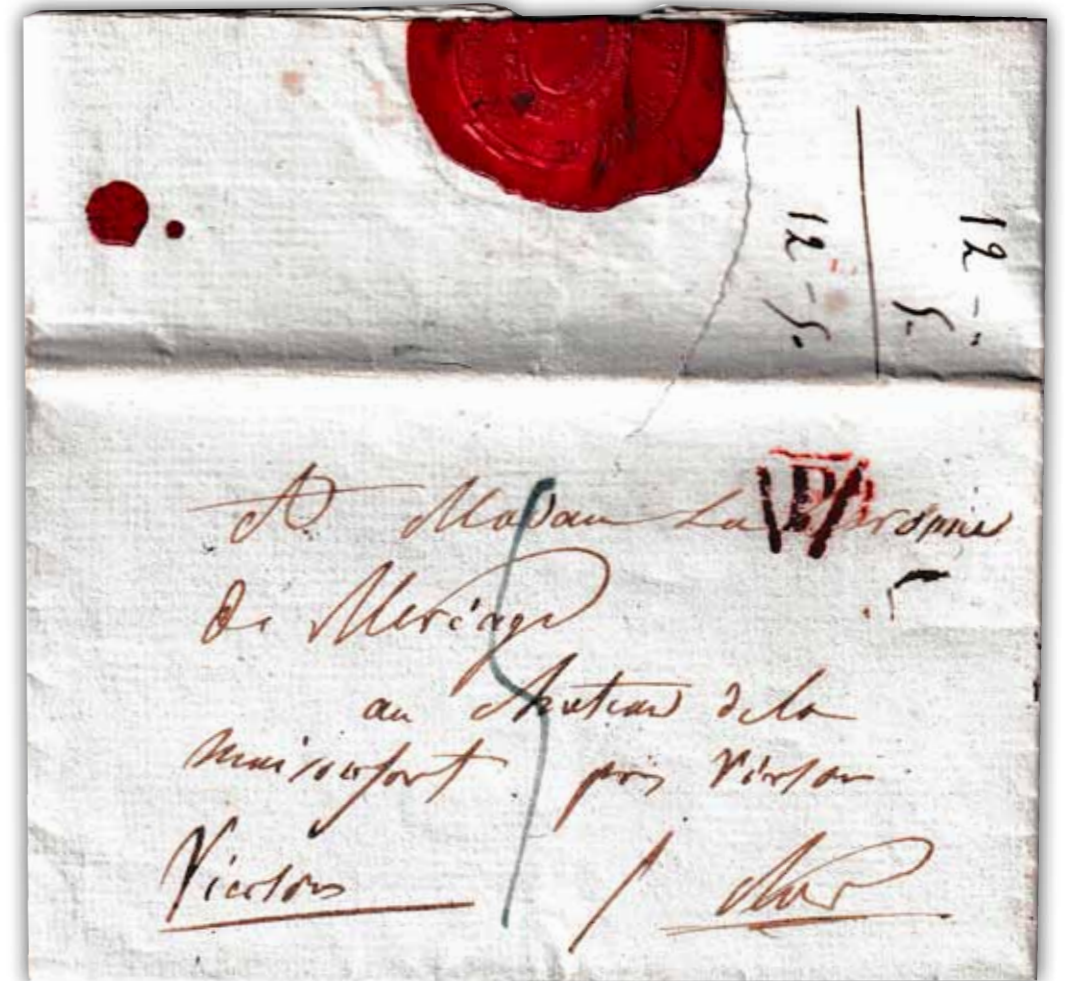 12 -"
5.
12 - 5.
P
A Madame La Baronne
de Meriage
au chateau de la
maisonfort près Vierson
Vierson / cher